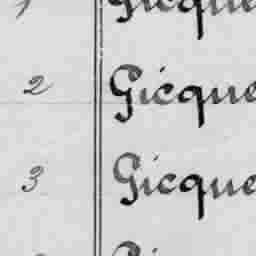 Gicque
2 Gicque
3 Gicque